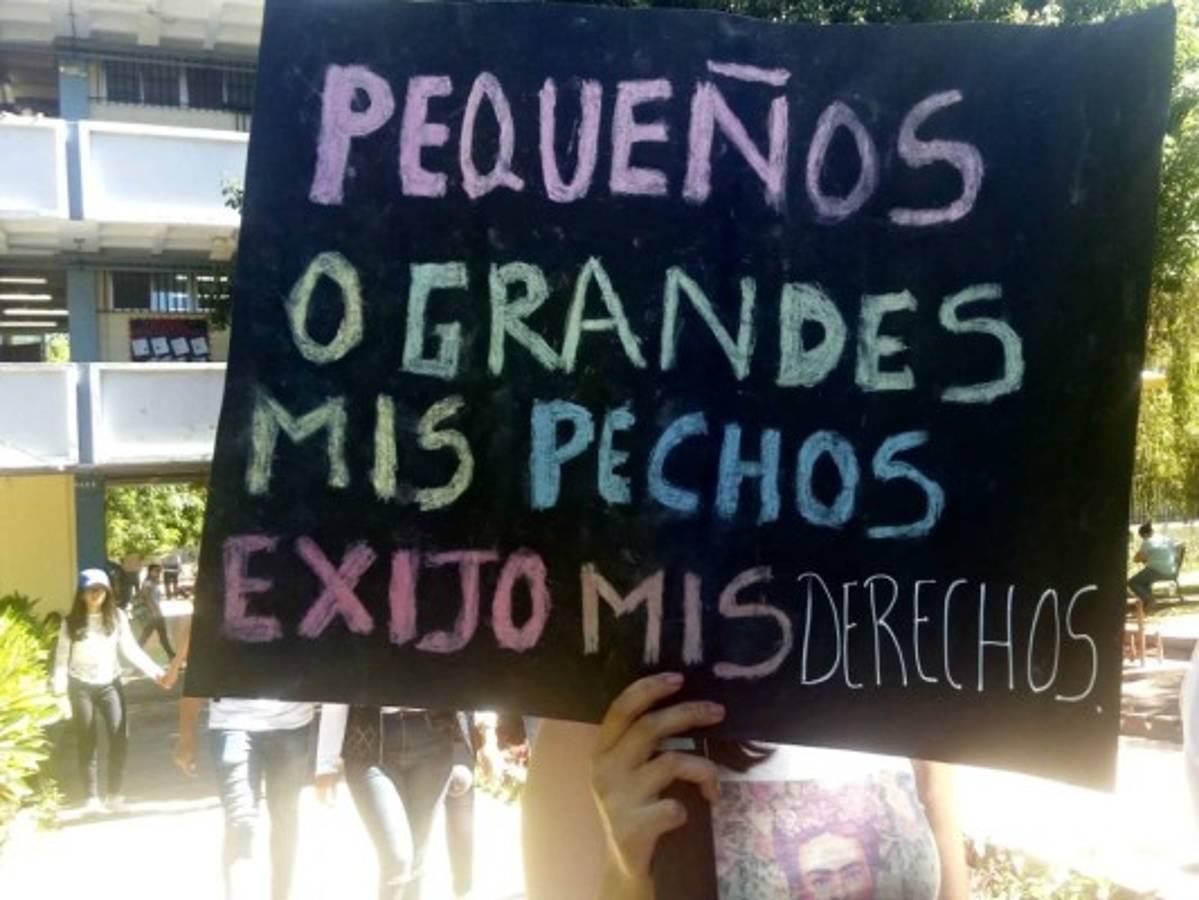 PEQUEÑOS
O GRANDES
MIS PECHOS
EXIJO MIS DERECHOS.